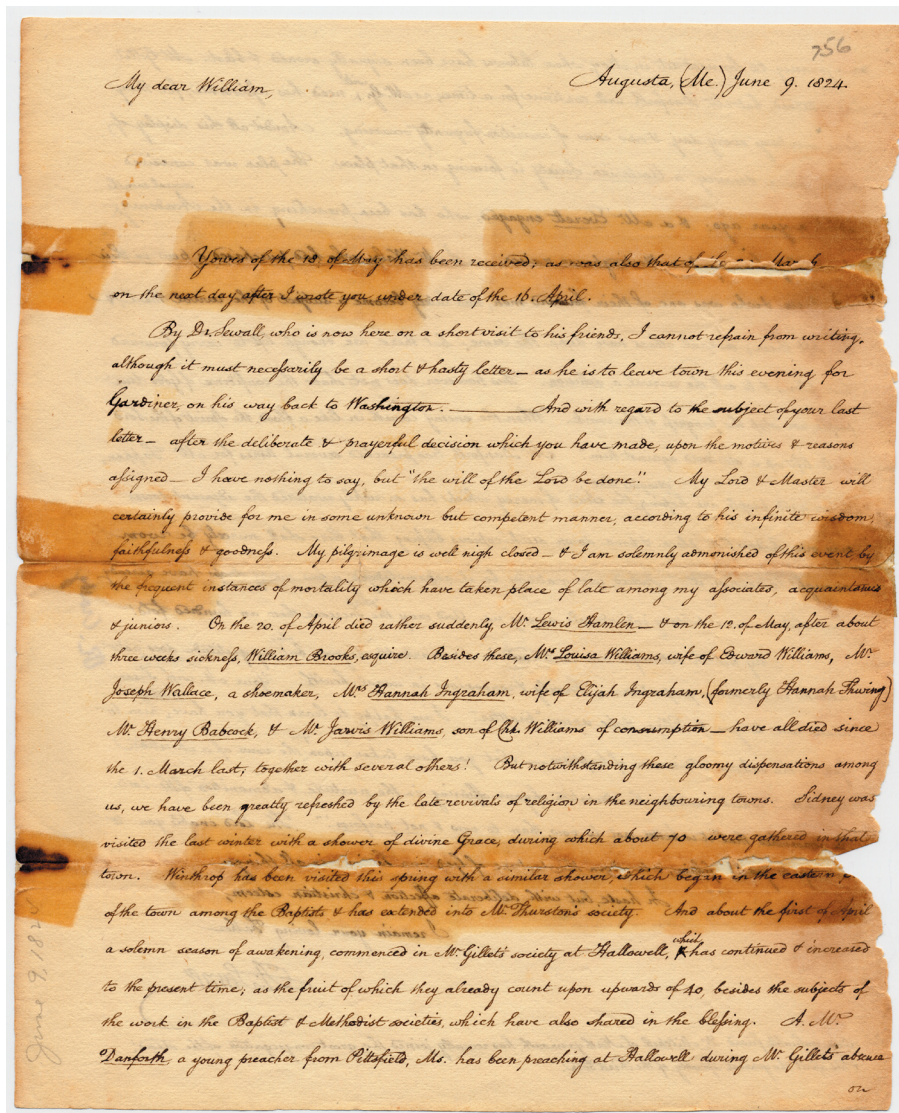 756
My dear William, Augusta, (Me.) June 9. 1824.
Yours of the 18 of May has been received; as was also that of the
on the next day after I wrote you under date of the 16. April.
By Dr. Sewall, who is now here on a short visit to his friends, I cannot refrain from writing,
although it must necessarily be a short & hasty letter — as he is to leave town this evening, for
Gardiner, on his way back to Washington. ——— And with regard to the subject of your last
letter — after the deliberate & prayerful decision which you have made, upon the motives & reasons
assigned — I have nothing to say, but "the will of the Lord be done." My Lord & Master will
certainly provide for me in some unknown but competent manner, according to his infinite wisdom,
faithfulness & goodness. My pilgrimage is well nigh closed — & I am solemnly admonished of this event by
the frequent instances of mortality which have taken place of late among my associates, acquaintances
& juniors. On the 20. of April died rather suddenly, Mr. Lewis Hamlen — & on the 12. of May, after about
three weeks sickness, William Brooks, esquire. Besides these, Mrs. Louisa Williams, wife of Edward Williams, Mr.
Joseph Wallace, a shoemaker, Mrs. Hannah Ingraham, wife of Elijah Ingraham, (formerly Hannah Thwing)
Mr. Henry Babcock, & Mr. Jarvis Williams, son of Williams of consumption — have all died since
the 1. March last; together with several others! But notwithstanding these gloomy dispensations among
us, we have been greatly refreshed by the late revivals of religion in the neighbouring towns. Sidney was
visited the last winter with a shower of divine Grace, during which about 70 were gathered in that
town. Winthrop has been visited this spring with a similar shower, which began in the eastern
of the town among the Baptists & has extended into Mr. Thurston's society. And about the first of April
a solemn season of awakening, commenced in Mr. Gillet's society at Hallowell, which has continued & increased
to the present time; as the fruit of which they already count upon upwards of 40, besides the subjects of
the work in the Baptist & Methodist societies, which have also shared in the blessing. A. Mr.
Danforth, a young preacher from Pittsfield, Ms. has been preaching at Hallowell during Mr. Gillet's absence
on
June 9. 182